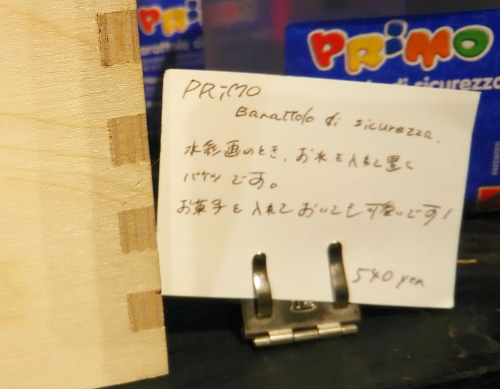 PRIMO
arattolo di
PRiMO
di sicurezza
PRiMO
Barattolo di sicurezza.
水彩画のとき、お水を入れて置く
バケツです。
お菓子を入れておいても可愛いです!
540 yen